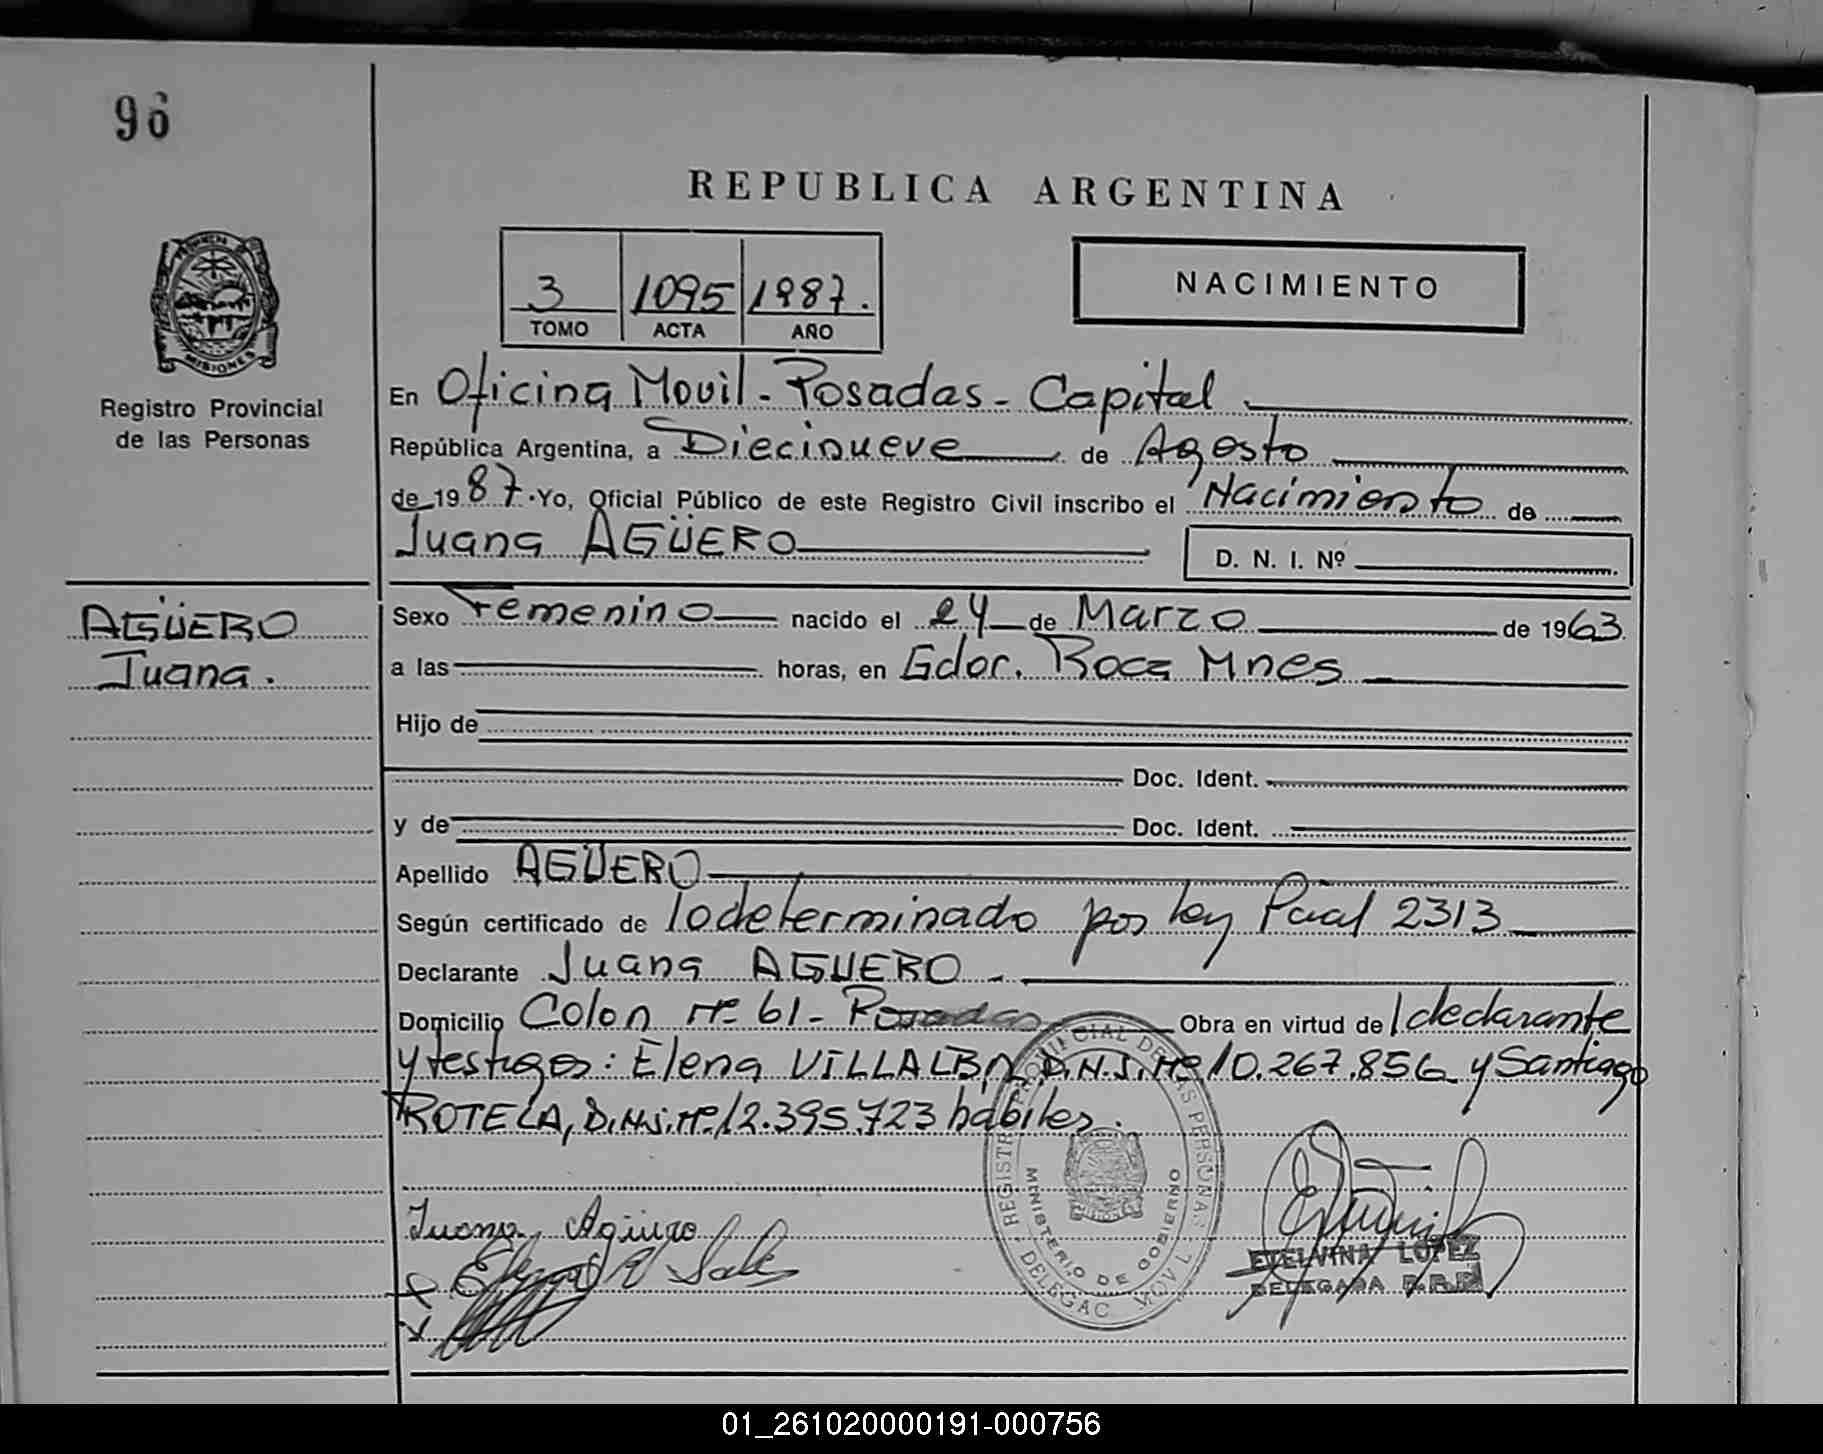 96
REPUBLICA ARGENTINA
3 1095 1987.
TOMO ACTA AÑO
NACIMIENTO
PROVINCIA
MISIONES
Registro Provincial
de las Personas
En Oficina Movil - Posadas - Capital
República Argentina, a Diecinueve de Agosto
de 1987. Yo, Oficial Público de este Registro Civil inscribo el Nacimiento de
Juana AGÜERO
D. N. I. Nº
AGÜERO
Juana.
Sexo Femenino nacido el 24 de Marzo de 1963.
a las horas, en Gdor. Roca Mnes
Hijo de
Doc. Ident.
y de Doc. Ident.
Apellido AGÜERO
Según certificado de Iodeterminado por ley Pcial 2313
Declarante Juana AGUERO -
Domicilio Colon Nº 61 - Posadas Obra en virtud de / declarante
y testigos: Elena VILLALBA, D.N.I. Nº 10.267.856 y Santiago
ROTELA, D.N.I. Nº 12.395.723 habiles.
REGISTRO PROVINCIAL DE LAS PERSONAS
MINISTERIO DE GOBIERNO
DELEGAC. MOVIL
Juana Agüero
ETELVINA LOPEZ
DELEGADA R.P.P.
01_261020000191-000756